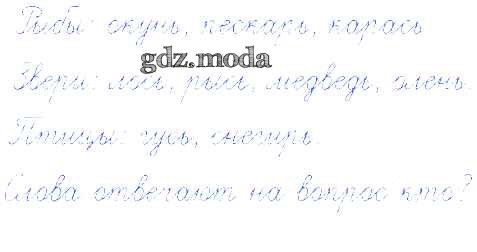 Рыбы: окунь, пескарь, карась
gdz.moda
Звери: лось, рысь, медведь, олень.
Птицы: гусь, снегирь.
Слова отвечают на вопрос кто?